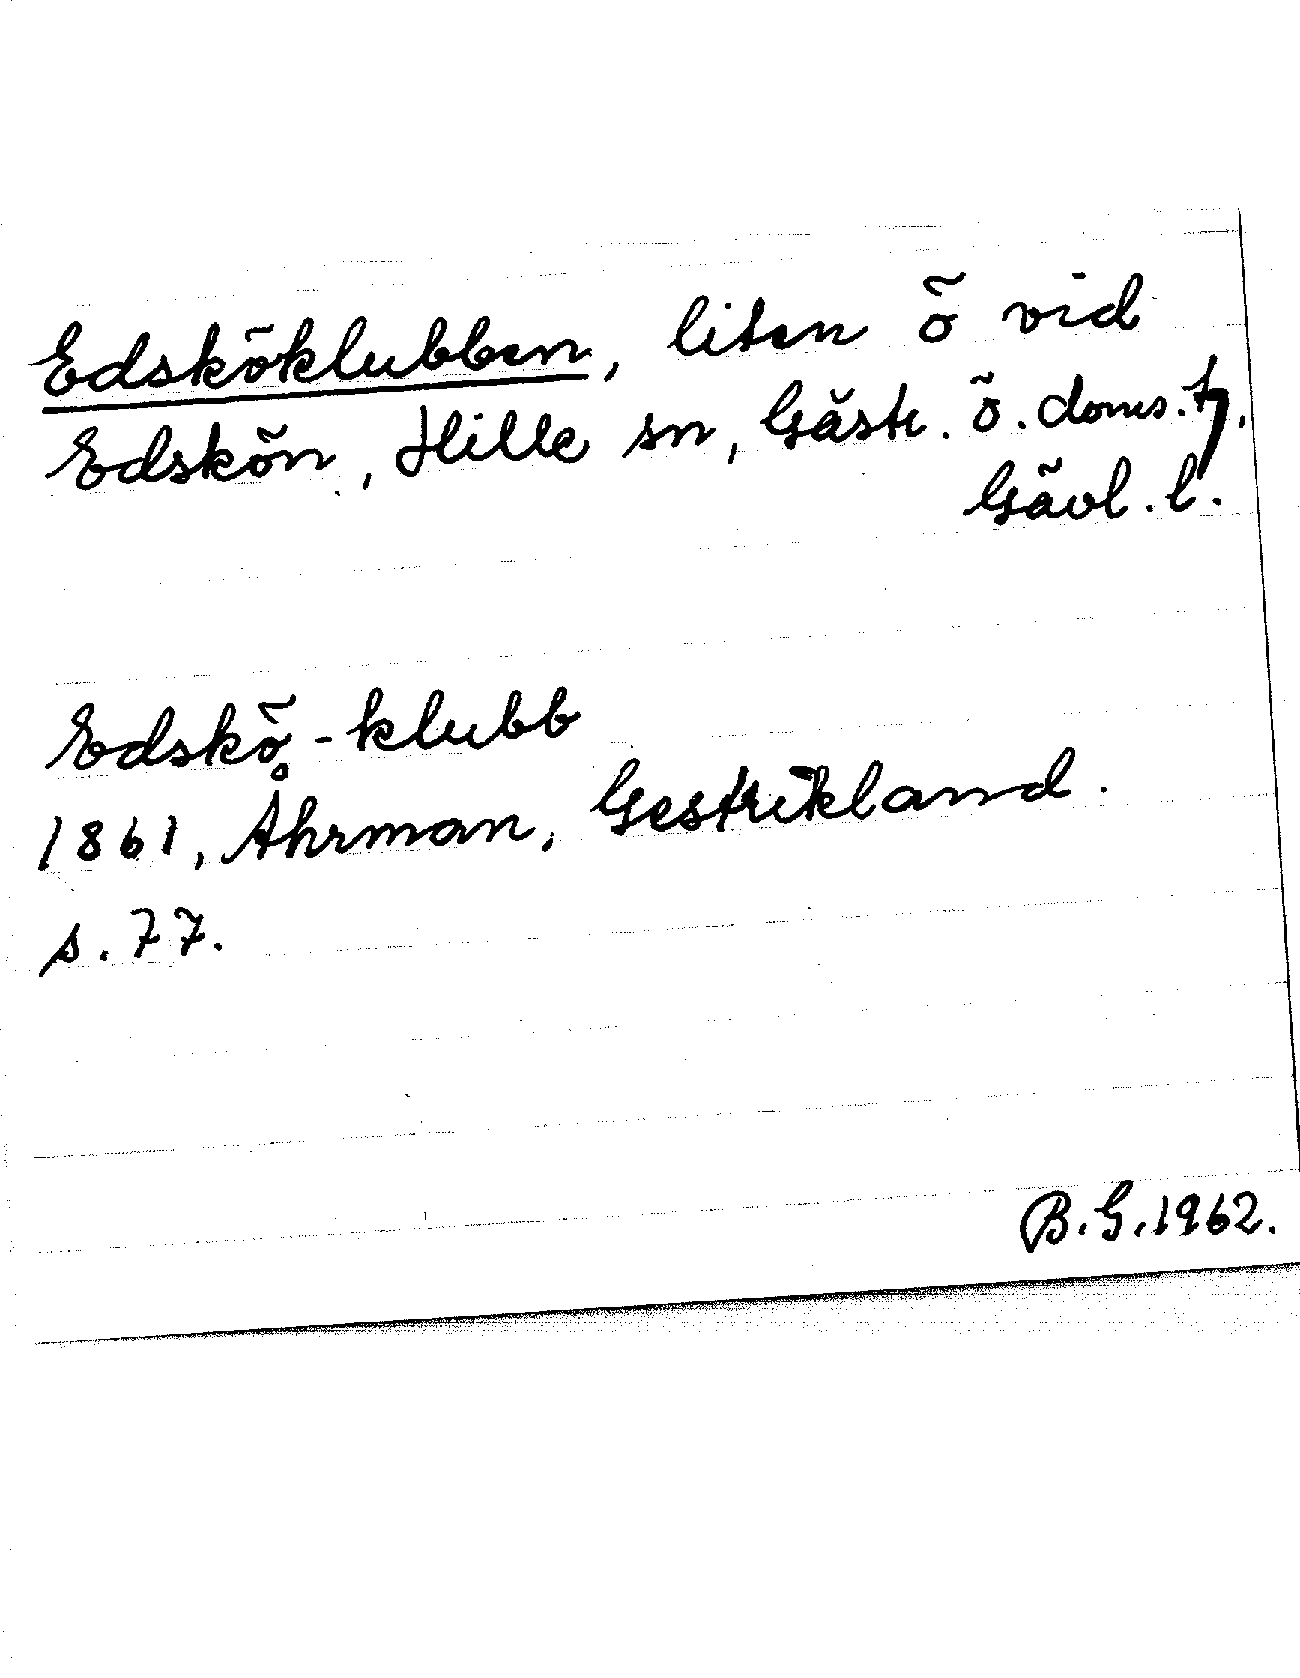 Edsköklubben, liten ö vid
Edskön, Hille sn, Gästr. ö. doms. tg,
Gävl. l.
Edskö-klubb
1861, Åhrman, Gestrikland.
s. 77.
B.G. 1962.